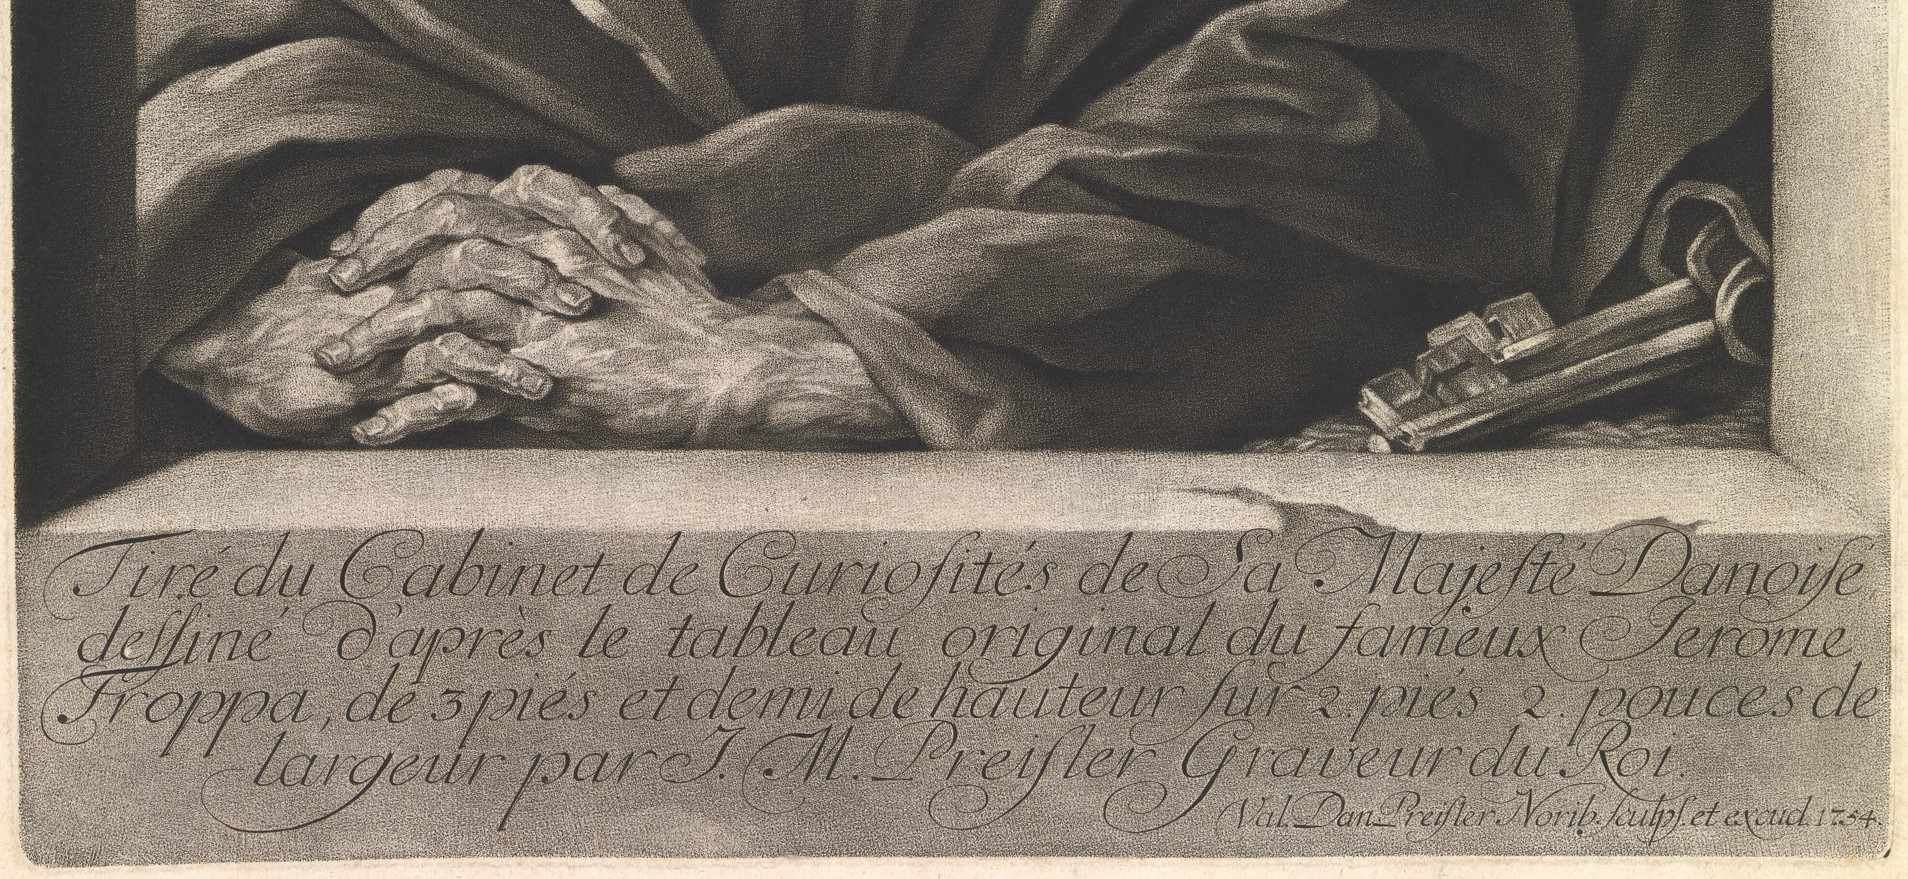 Tiré du Cabinet de Curioſités de Sa Majeſté Danoiſe,
deſſiné d'après le tableau original du fameux Jerome
Troppa, de 3 piés et demi de hauteur ſur 2. piés 2. pouces de
largeur par J. M. Preiſler Graveur du Roi.
Val. Dan Preiſler Norib. ſculpſ. et excud. 1754.